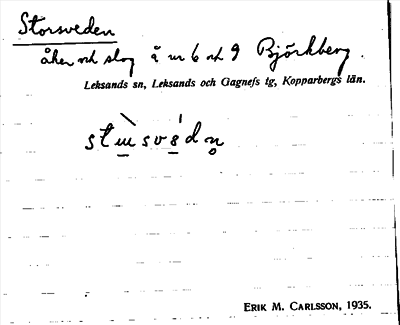 Storsveden
åker och slog å nr 6 och 9 Björkberg.
Leksands sn, Leksands och Gagnefs tg, Kopparbergs län.
ERIK M. CARLSSON, 1935.